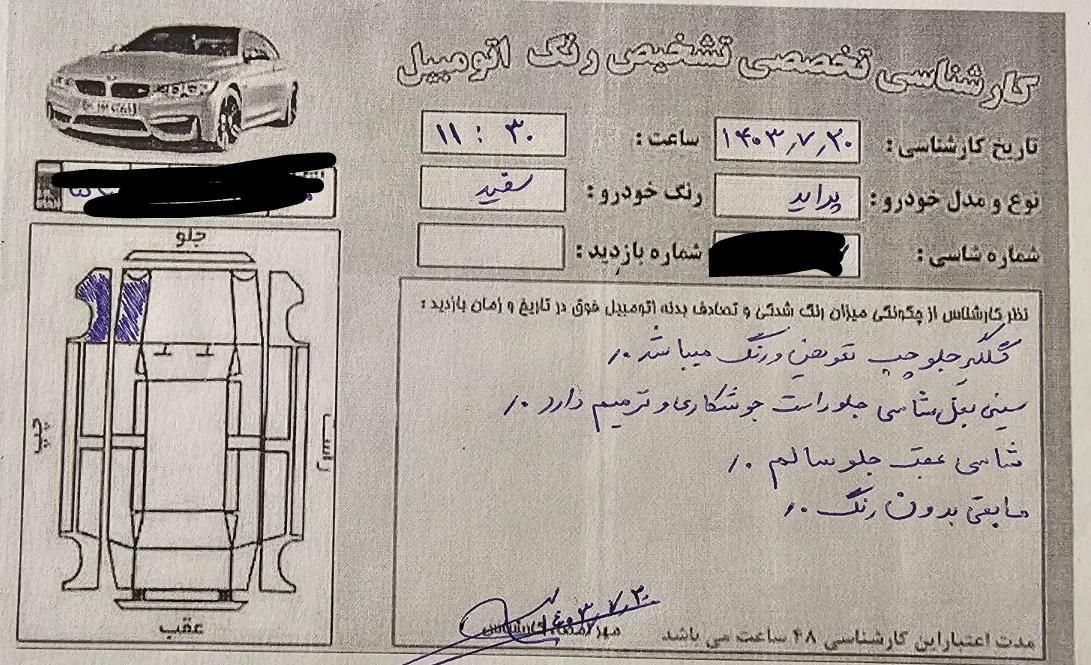 کارشناسی تخصصی تشخیص رنگ اتومبیل
تاریخ کارشناسی : ۱۴۰۳٫۷٫۲۰ ساعت : ۱۱ : ۳۰
نوع و مدل خودرو : پراید رنگ خودرو : سفید
شماره شاسی : شماره بازدید :
نظر کارشناس از چگونگی میزان رنگ شدگی و تصادف بدنه اتومبیل فوق در تاریخ و زمان بازدید :
گلگیر جلو چپ تعویض و رنگ میباشد ٪
سینی بغل شاسی جلو راست جوشکاری و ترمیم دارد ٪
شاسی عقب جلو سالم ٪
مابقی بدون رنگ ٪
مدت اعتبار این کارشناسی ۴۸ ساعت می باشد
مهر امضاء کارشناس
جلو
چپ
راست
عقب